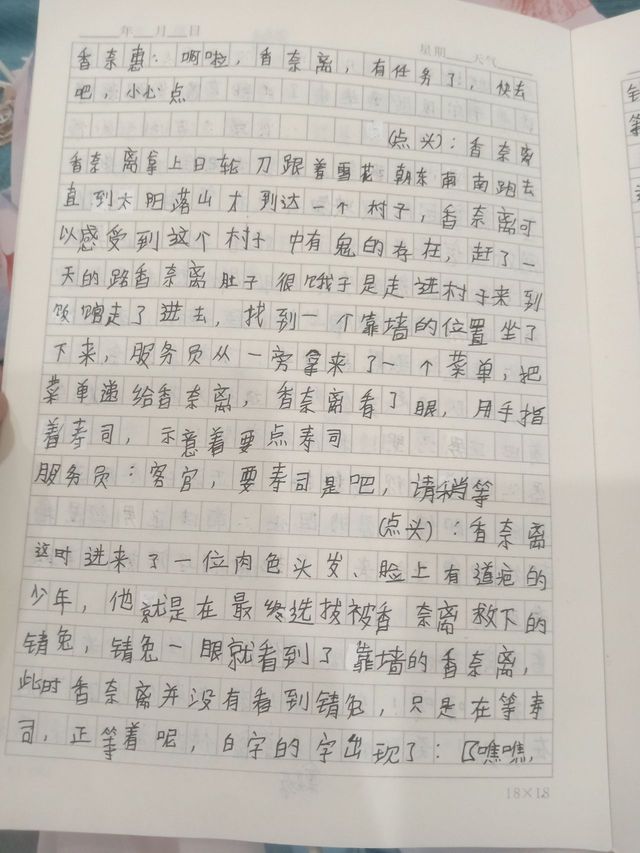 年 月 日
星期 天气
香奈惠：啊啦，香奈离，有任务了，快去
吧，小心点
（点头）：香奈离
香奈离拿上日轮刀跟着雪花朝东南南跑去
直到太阳落山才到达一个村子，香奈离可
以感受到这个村子中有鬼的存在，赶了一
天的路香奈离肚子很饿于是走进村子来到
饭馆走了进去，找到一个靠墙的位置坐了
下来，服务员从一旁拿来了一个菜单，把
菜单递给香奈离，香奈离看了眼，用手指
着寿司，示意着要点寿司
服务员：客官，要寿司是吧，请稍等
（点头）：香奈离
这时进来了一位肉色头发、脸上有道疤的
少年，他就是在最终选拔被香奈离救下的
锖兔，锖兔一眼就看到了靠墙的香奈离，
此时香奈离并没有看到锖兔，只是在等寿
司，正等着呢，白字的字出现了：【瞧瞧，
18×18